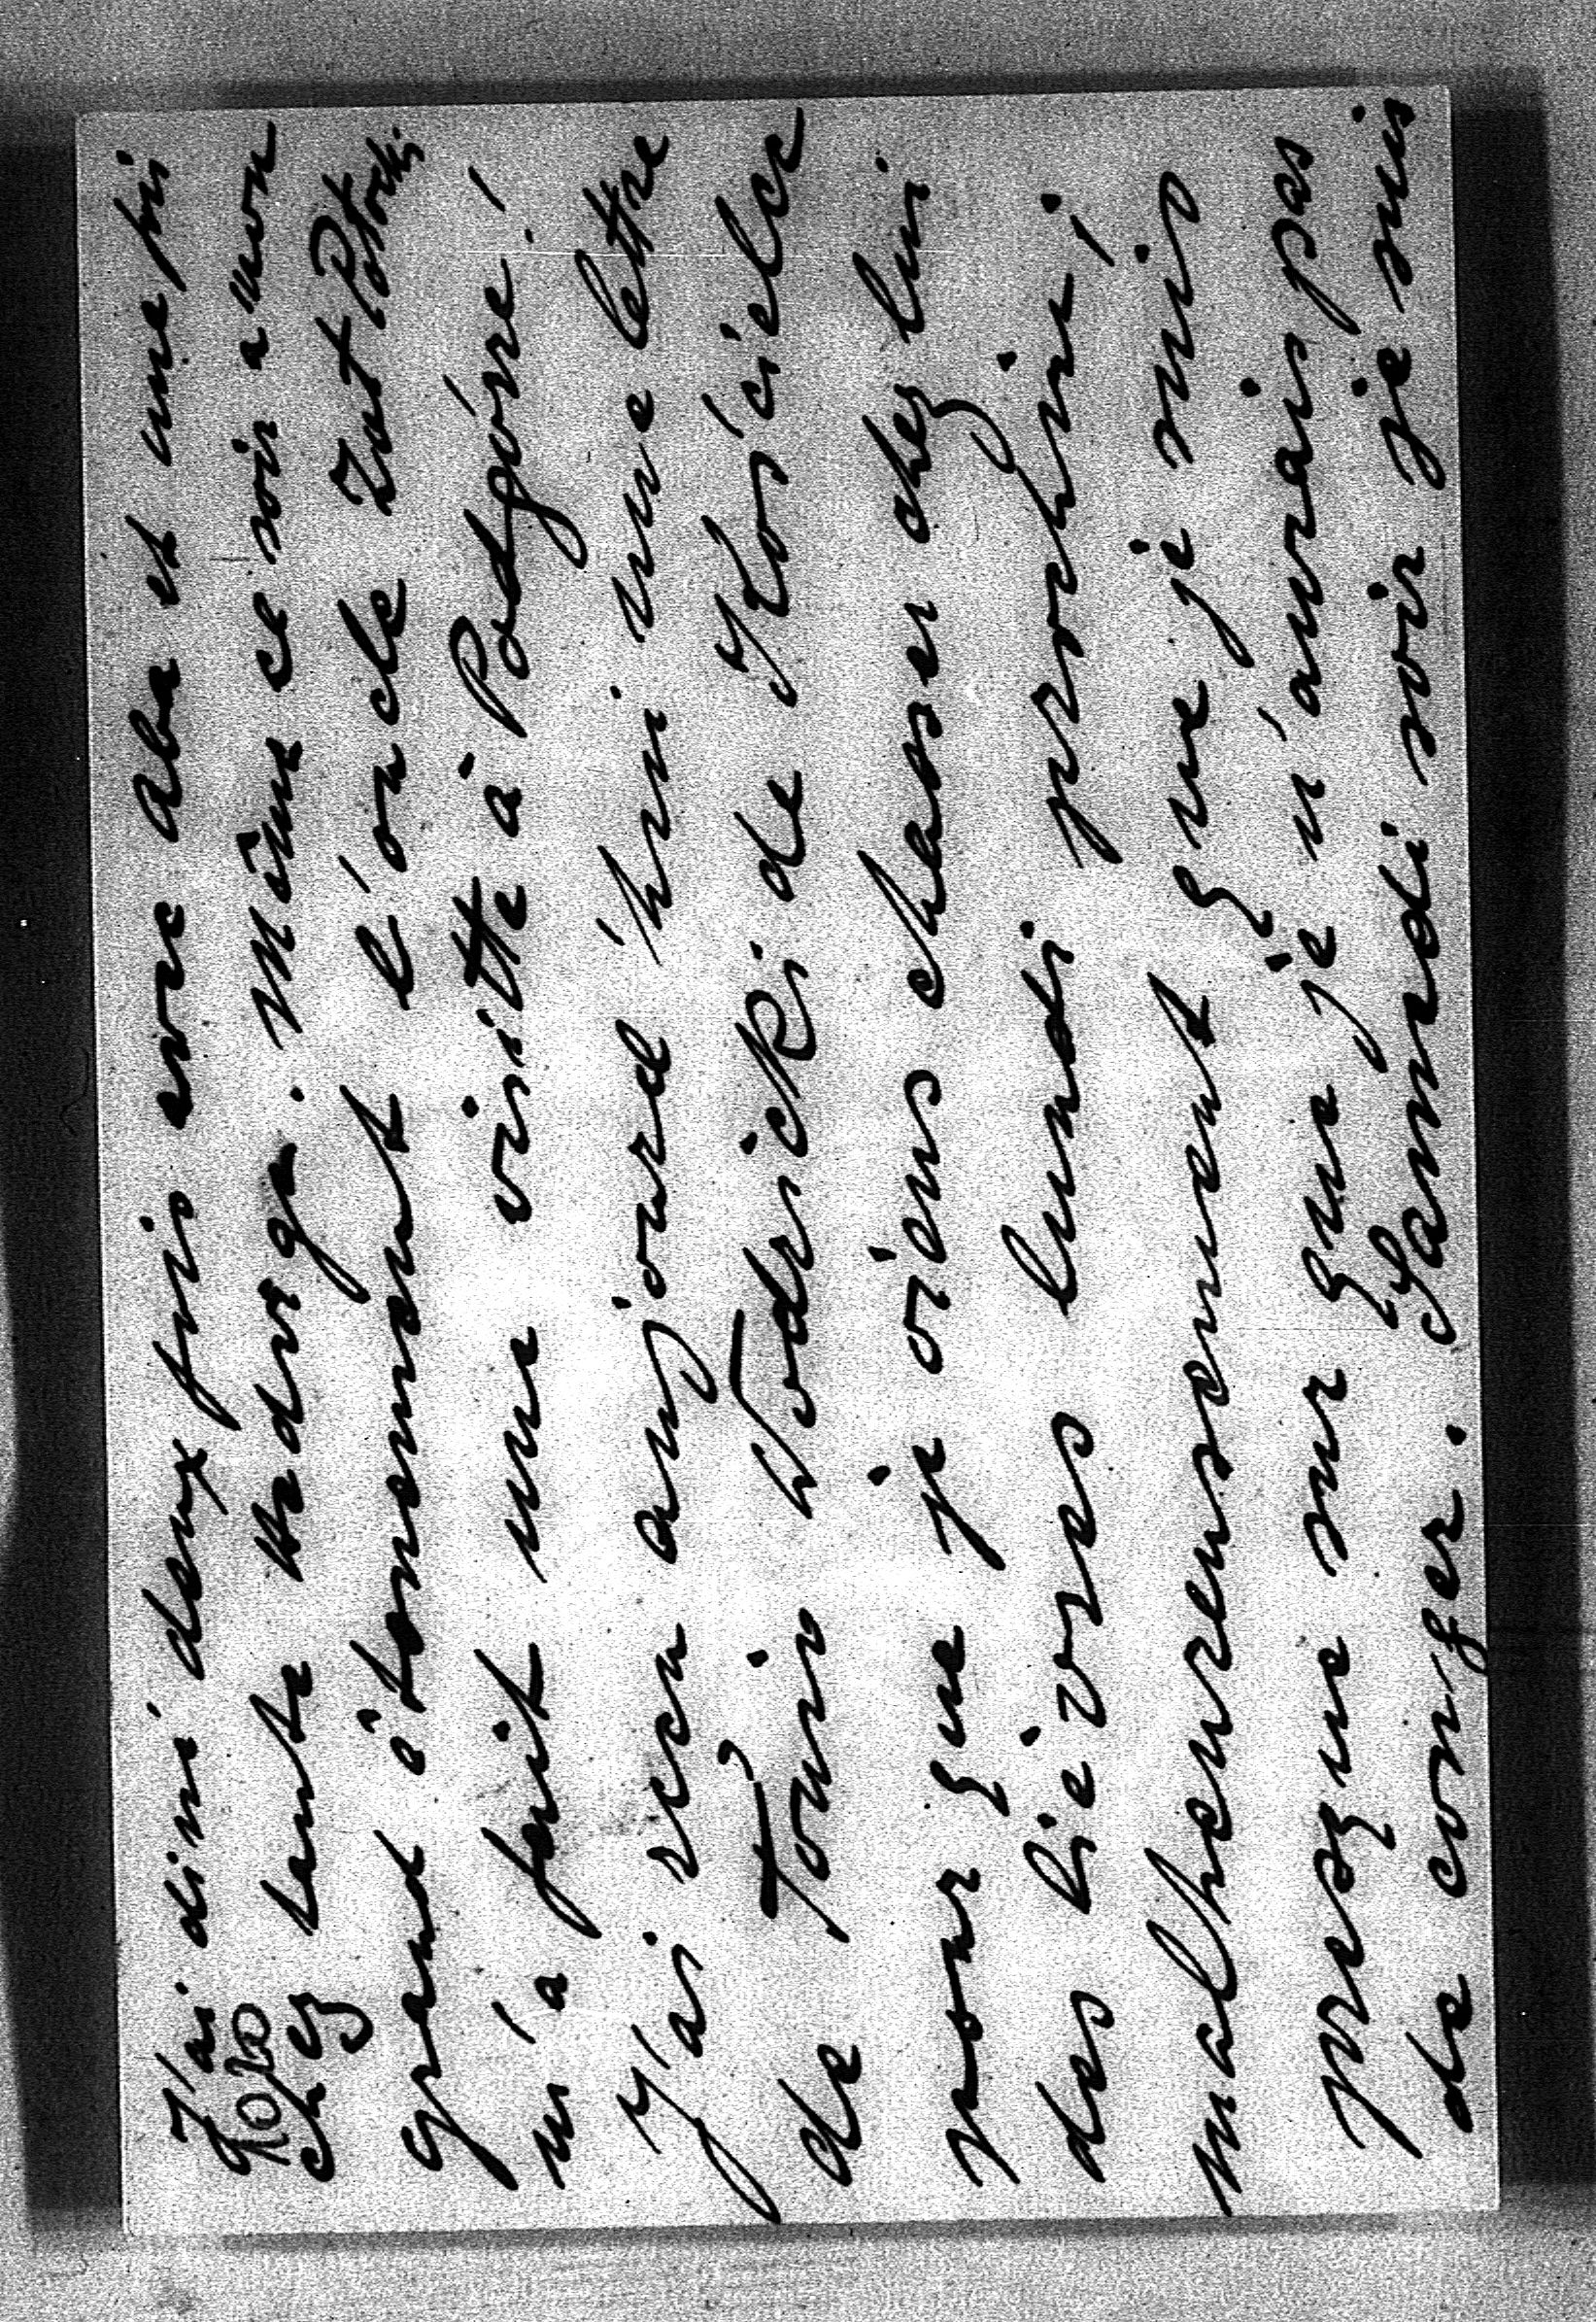 J'ai diné deux fois avec Aba et une fois
1020
chez tante Hedvige. Même ce soir a mon
grand étonement l'oncle Zut Potocki
m'a fait une visitte à Podgórze!
J'ai reçu aujourd'hui une lettre
de Tonio Wodzicki de Kościelec
pour que je viens chasser chez lui
des lièvres lundi prochin!
malheureusement que je suis
presque sur que je n'aurais pas
de conger. Samedi soir je suis